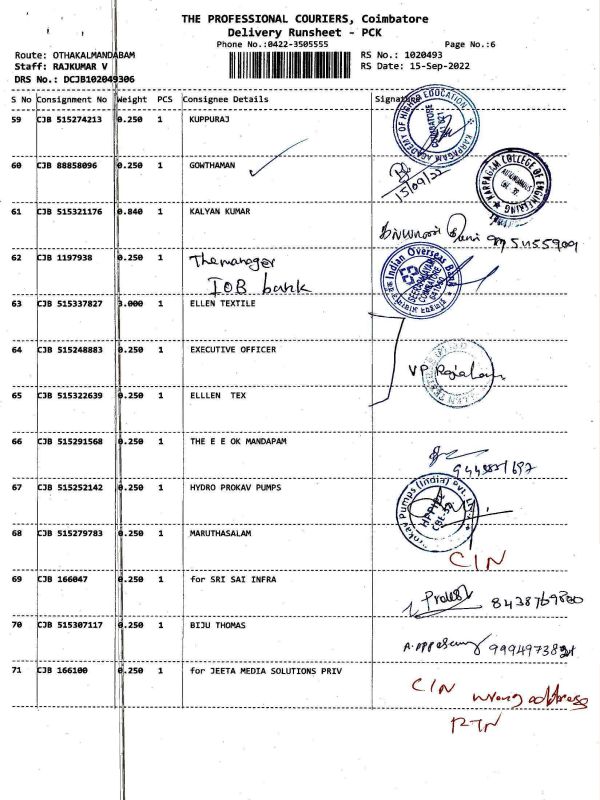 THE PROFESSIONAL COURIERS, Coimbatore
Delivery Runsheet - PCK
Phone No.:0422-3505555
Page No.:6
Route: OTHAKALMANDABAM
RS No.: 1020493
Staff: RAJKUMAR V
RS Date: 15-Sep-2022
DRS No.: DCJB102049306
S No Consignment No Weight PCS Consignee Details Signature
59 CJB 515274213 0.250 1 KUPPURAJ
KARPAGAM ACADEMY OF HIGHER EDUCATION
COIMBATORE
641 021
60 CJB 88858096 0.250 1 GOWTHAMAN
15/09/22
KARPAGAM COLLEGE OF ENGINEERING
AUTONOMOUS
61 CJB 515321176 0.840 1 KALYAN KUMAR
62 CJB 1197938 0.250 1 The manager
IOB bank
Indian Overseas Bank
COIMBATORE
63 CJB 515337827 3.000 1 ELLEN TEXTILE
64 CJB 515248883 0.250 1 EXECUTIVE OFFICER
VP
65 CJB 515322639 0.250 1 ELLLEN TEX
66 CJB 515291568 0.250 1 THE E E OK MANDAPAM
67 CJB 515252142 0.250 1 HYDRO PROKAV PUMPS
Prokav Pumps (India) Pvt. Ltd.
68 CJB 515279783 0.250 1 MARUTHASALAM
CIN
69 CJB 166047 0.250 1 for SRI SAI INFRA
8438769800
70 CJB 515307117 0.250 1 BIJU THOMAS
71 CJB 166100 0.250 1 for JEETA MEDIA SOLUTIONS PRIV
CIN wrong address
RTN